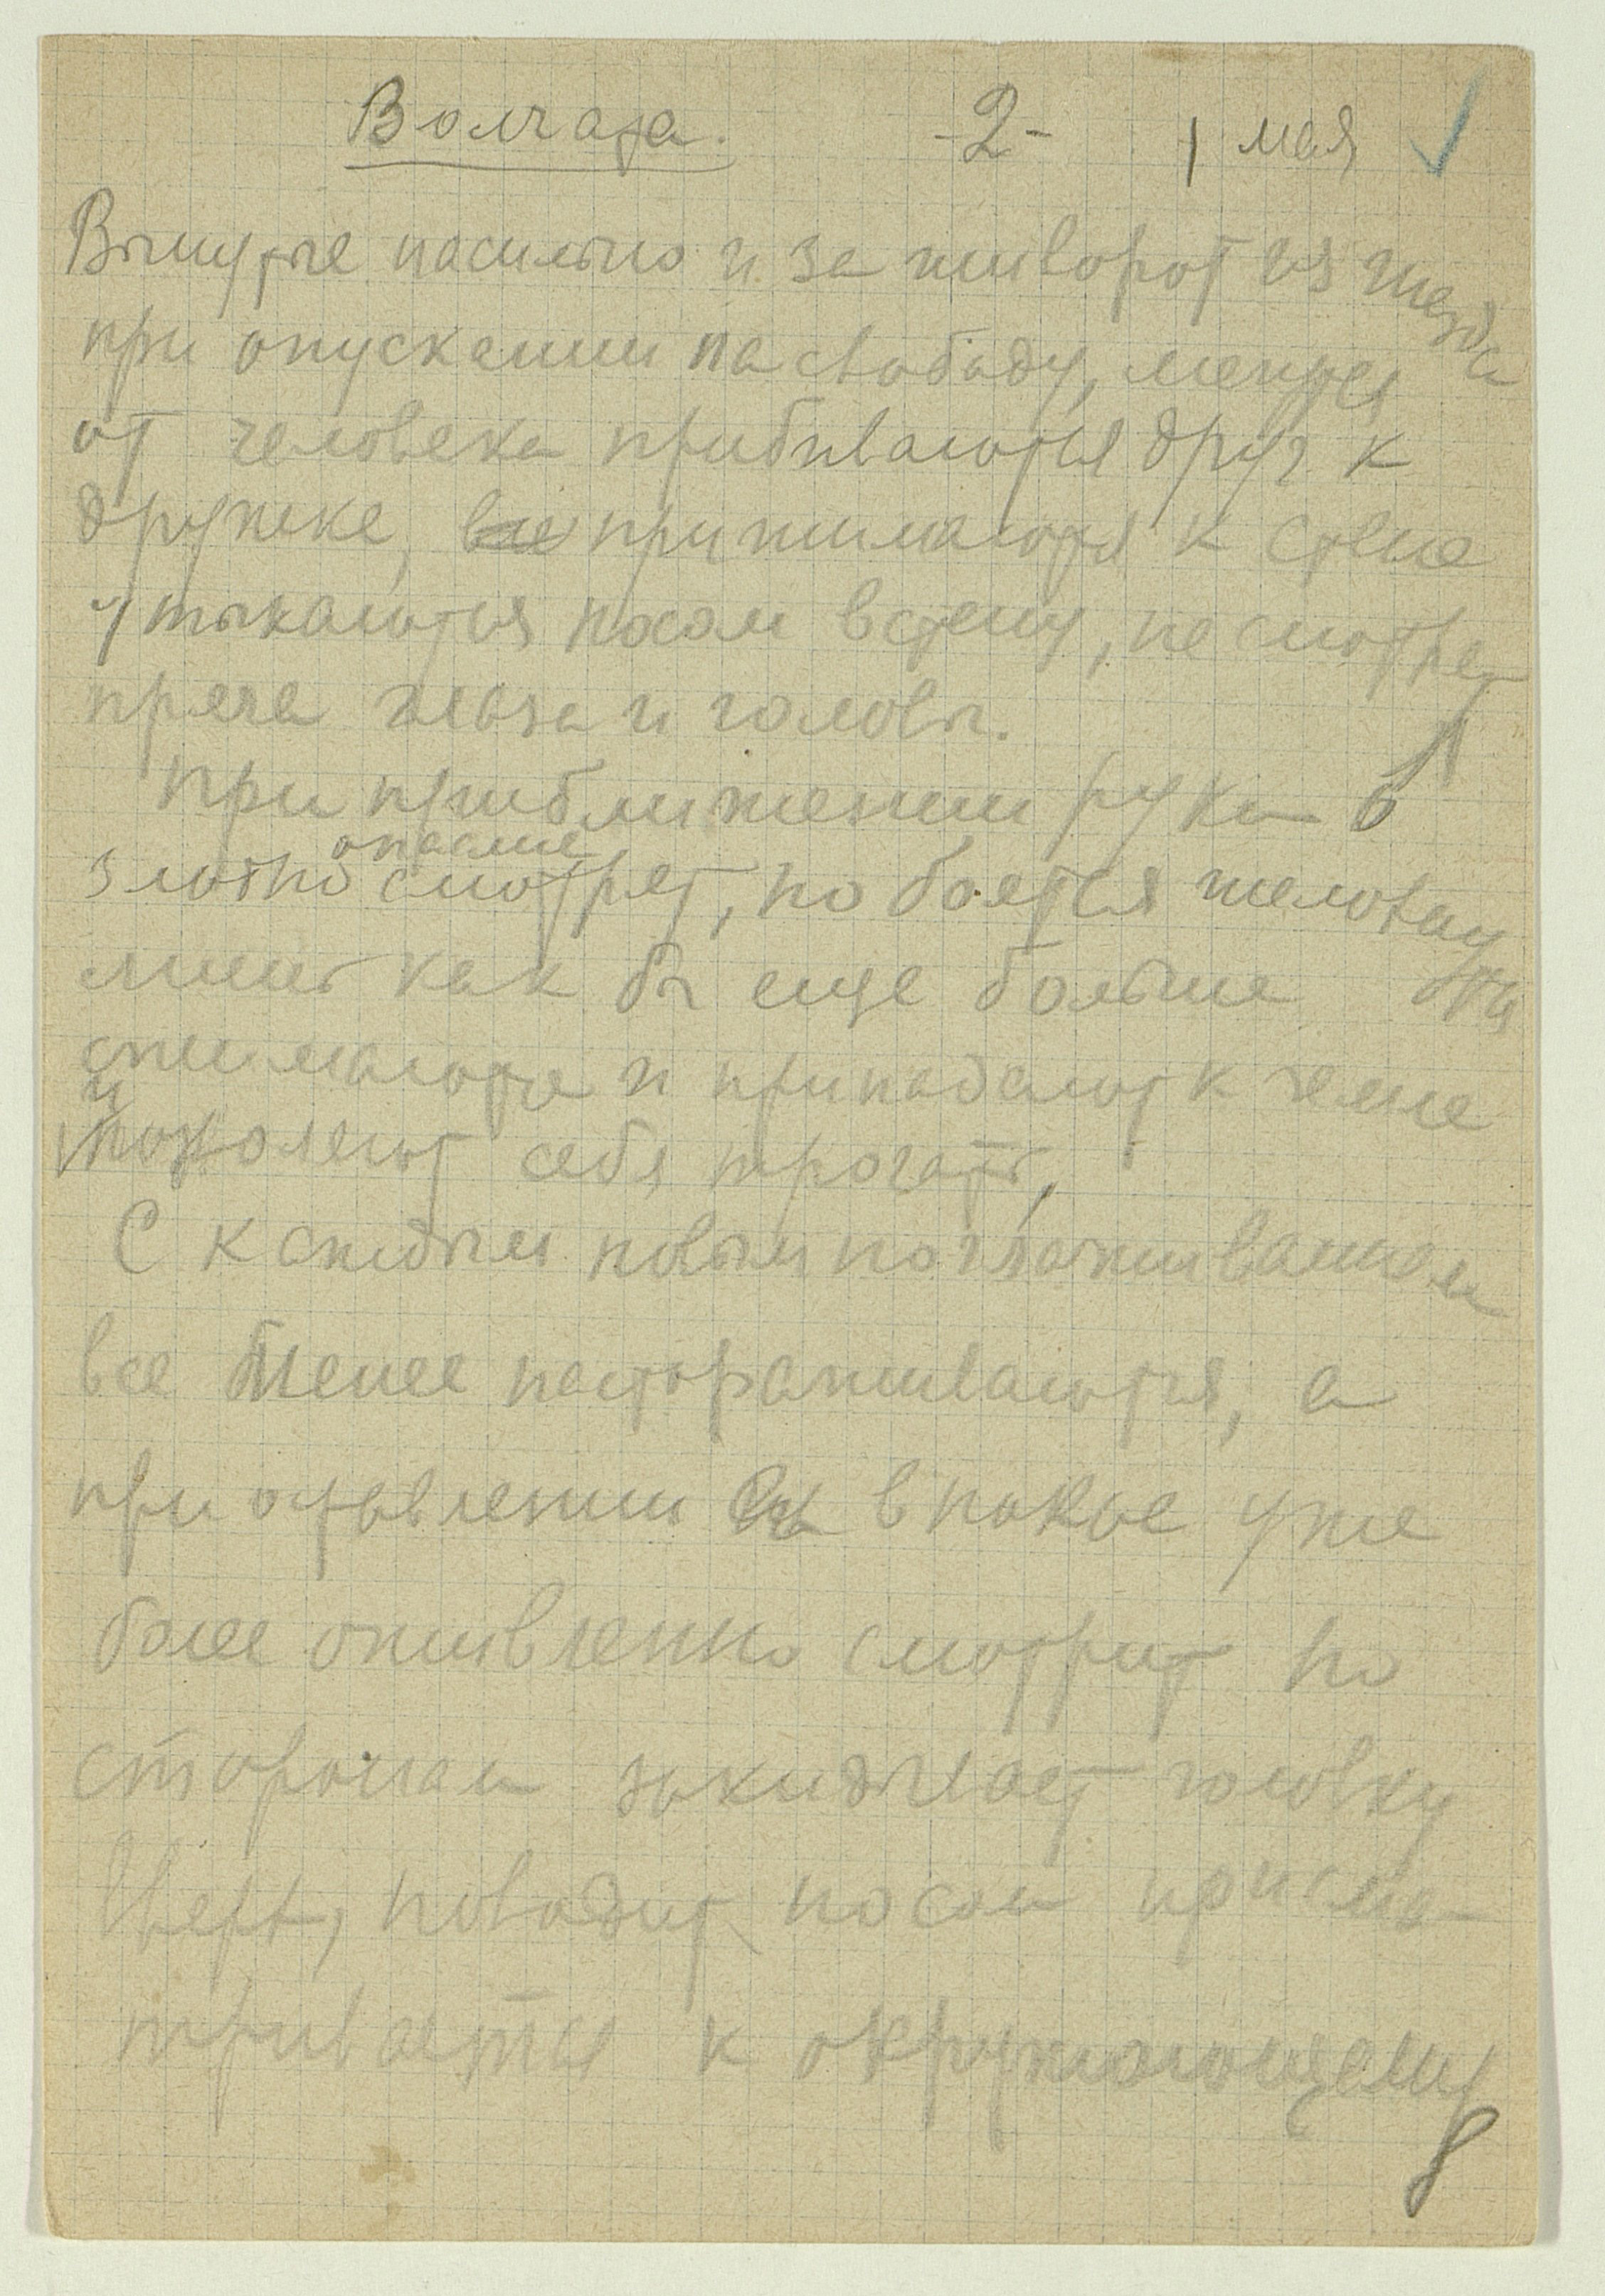 Волчата. -2- 1 мая
Вынутые насильно и за шиворот из гнезда
при опускании на свободу,
от человека прибиваются друг к
дружке, все прижимаются к стене
утыкаются носом в стену, не смотрят
пряча глаза и головы.
При приближении руки
злобно опасливо смотрят, но боятся
лишь как бы еще больше
сжимаются и припадают к земле
и позволяют себя трогать,
С каждым новым поглаживанием
все менее настораживаются, а
при оставлении в покое уже
более оживленно смотрит по
сторонам закидывает головку
вверх, поводит носом присма-
тривается к окружающему
8